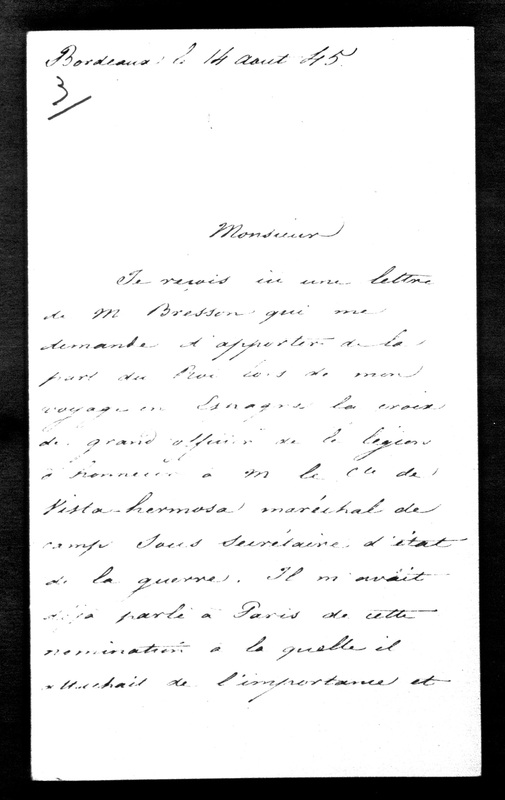 Bordeaux le 14 aout 45
3
Monsieur
Je reçois ici une lettre
de M Bresson qui me
demande d'apporter de la
part du Roi lors de mon
voyage en Espagne la croix
de grand officier de la légion
d'honneur à M le Cte de
Vista-hermosa maréchal de
camp Sous Secrétaire d'état
de la guerre. Il m'avait
déjà parlé à Paris de cette
nomination à la quelle il
attachait de l'importance et